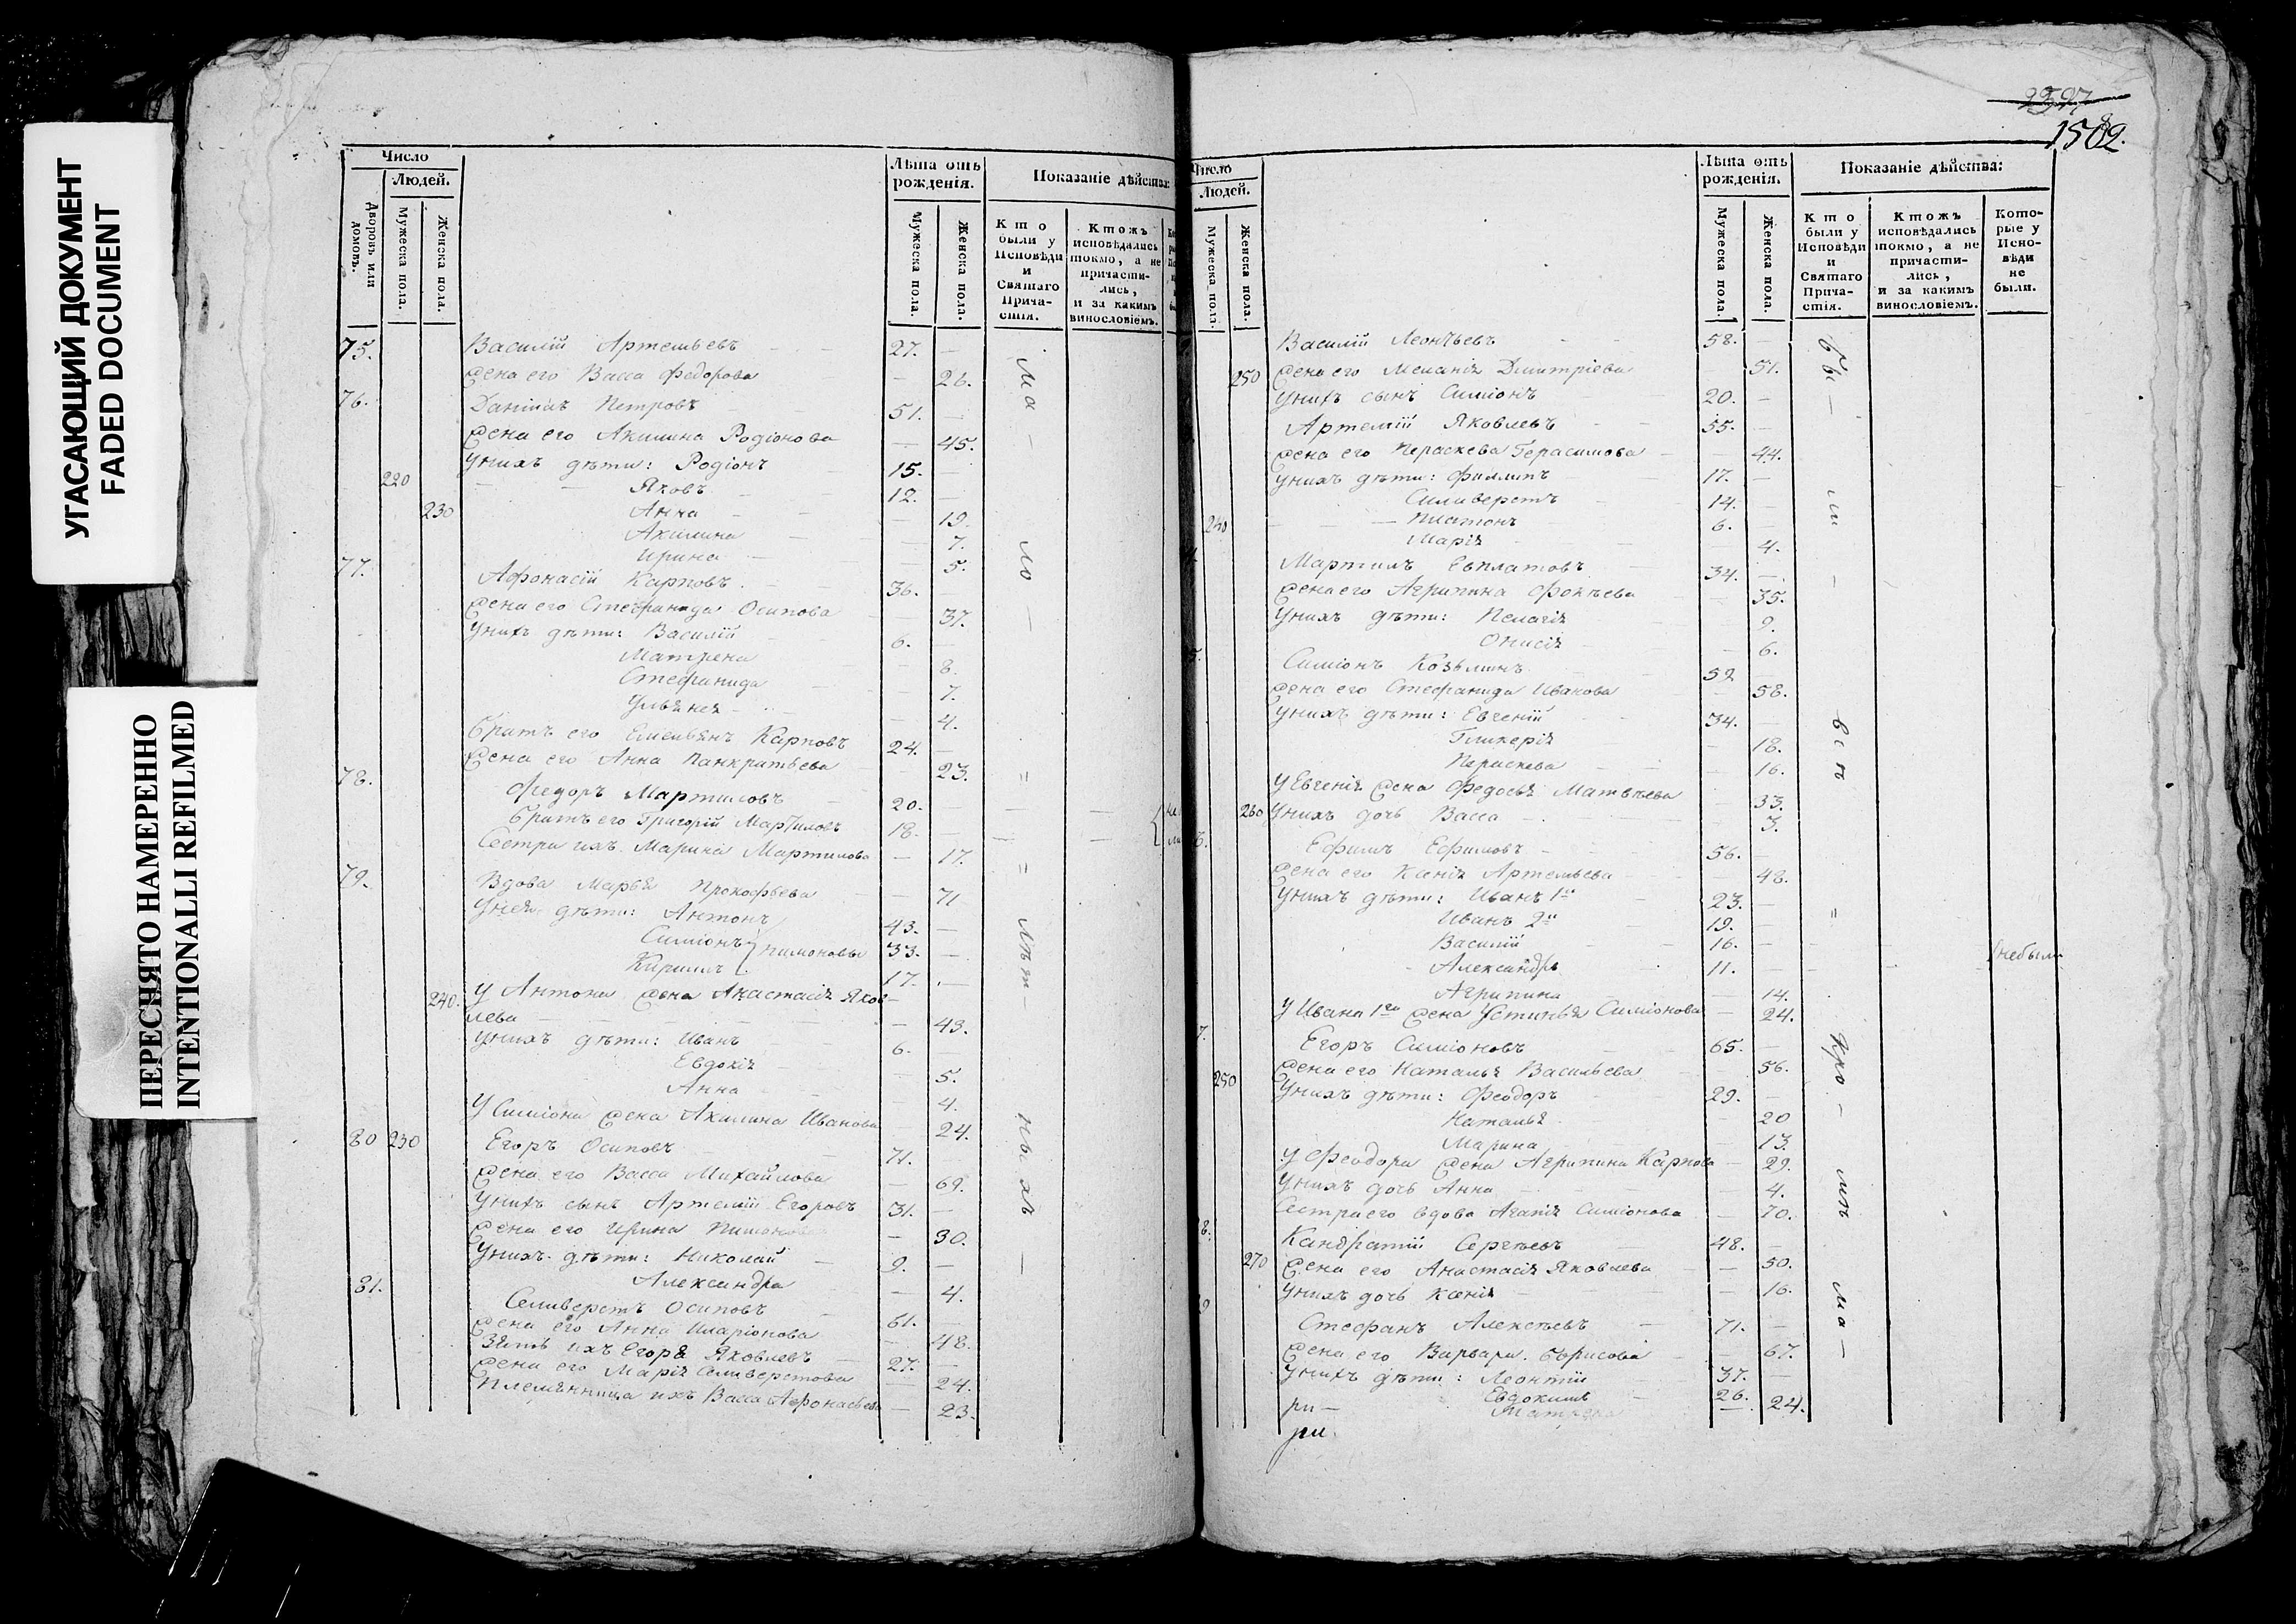 УГАСАЮЩИЙ ДОКУМЕНТ
FADED DOCUMENT
ПЕРЕСНЯТО НАМЕРЕННО
INTENTIONALLI REFILMED
Число
Людей.
Дворовъ или домовъ.
Мужеска пола.
Женска пола.
Лѣта отъ рожденія.
Мужеска пола.
Женска пола.
Показаніе дѣйства:
Кто были у Исповѣди и Святаго Причастія.
Ктожъ исповѣдались токмо, а не причастились, и за какимъ винословіемъ.
75. Василій Артемьевъ 27. —
Жена его Васса Федорова — 26.
76. Даніилъ Петровъ 51. —
Жена его Акилина Родіонова — 45.
Унихъ дѣти: Родіонъ 15. —
220 Яковъ 12. —
230 Анна — 19.
Акилина — 7.
Ирина — 5.
77. Афонасій Карповъ 36.
Жена его Стефанида Осипова 37.
Унихъ дѣти: Василій 6. —
Матрена — 8.
Стефанида — 7.
Ульянея — 4.
Братъ его Емельянъ Карповъ 24. —
Жена его Анна Панкратьева — 23.
78. Федоръ Мартиновъ 20. —
Братъ его Григорій Мартиновъ 18. —
Сестра ихъ Марина Мартинова — 17.
79. Вдова Марья Прокофьева — 71
Унея дѣти: Антонъ 43. —
Симіонъ Пимоновы 33. —
Кирилъ 17. —
240. У Антона жена Анастасія Яков—
лева — 43.
Унихъ дѣти: Иванъ 6. —
Евдокія — 5.
Анна — 4.
У Симіона жена Акилина Иванова 24.
80 230 Егоръ Осиповъ 71.
Жена его Васса Михайлова — 69.
Унихъ сынъ Артемій Егоровъ 31. —
Жена его Ирина — 30.
Унихъ дѣти: Николай 9. —
Александра — 4.
81. Селиверстъ Осиповъ 61. —
Жена его Анна Иларіонова — 48.
Зять ихъ Егоръ Яковлевъ 27. —
Жена его Марія Селиверстова — 24.
Племянница ихъ Васса Афонасьева — 23.
ма — ло — лѣт — ны хъ —
2397
1582.
Число
Людей.
Мужеска пола.
Женска пола.
Лѣта отъ рожденія.
Мужеска пола.
Женска пола.
Показаніе дѣйства:
Кто были у Исповѣди и Святаго Причастія.
Ктожъ исповѣдались токмо, а не причастились, и за какимъ винословіемъ.
Которые у Исповѣди не были.
Василій Леонтьевъ 58. —
250 Жена его Меланія Димитріева 51.
Унихъ сынъ Симіонъ 20. —
Артемій Яковлевъ 55. —
Жена его Пераскева Герасимова — 44.
Унихъ дѣти: Филлипъ 17. —
Силиверстъ 14. —
240 Платонъ 6. —
Марія — 4.
Мартинъ Евплатовъ 34. —
Жена его Агрипина Фокѣева 35.
Унихъ дѣти: Пелагія 9.
Онисія — 6.
Симіонъ Козьминъ 59
Жена его Стефанида Иванова — 58.
Унихъ дѣти: Евгеній 34. —
Гликерія — 18.
Параскева — 16.
У Евгенія жена Федосья Матвѣева 33.
260 Унихъ дочь Васса 3.
Ефимъ Ефимовъ 56. —
Жена его Ксенія Артемьева 48.
Унихъ дѣти: Иванъ 1й 23. —
Иванъ 2й 19. —
Василій 16. —
Александръ 11. — небыли
Агрипина — 14.
У Ивана 1го жена Устинья Симіонова — 24.
Егоръ Симіоновъ 65. —
250 Жена его Наталья Васильева 56.
Унихъ дѣти: Феодоръ 29. —
Наталья 20
Марина — 13.
У Феодора жена Агрипина Карпова — 29.
Унихъ дочь Анна — 4.
Сестра его вдова Агапія Симіонова — 70.
Кандратій Сергѣевъ 48. —
270 Жена его Анастасія Яковлева — 50.
Унихъ дочь Ксенія — 16.
Стефанъ Алексѣевъ 71. —
Жена его Варвара Борисова — 67.
Унихъ дѣти: Леонтій 37. —
Евдокимъ 26.
Матрена — 24.